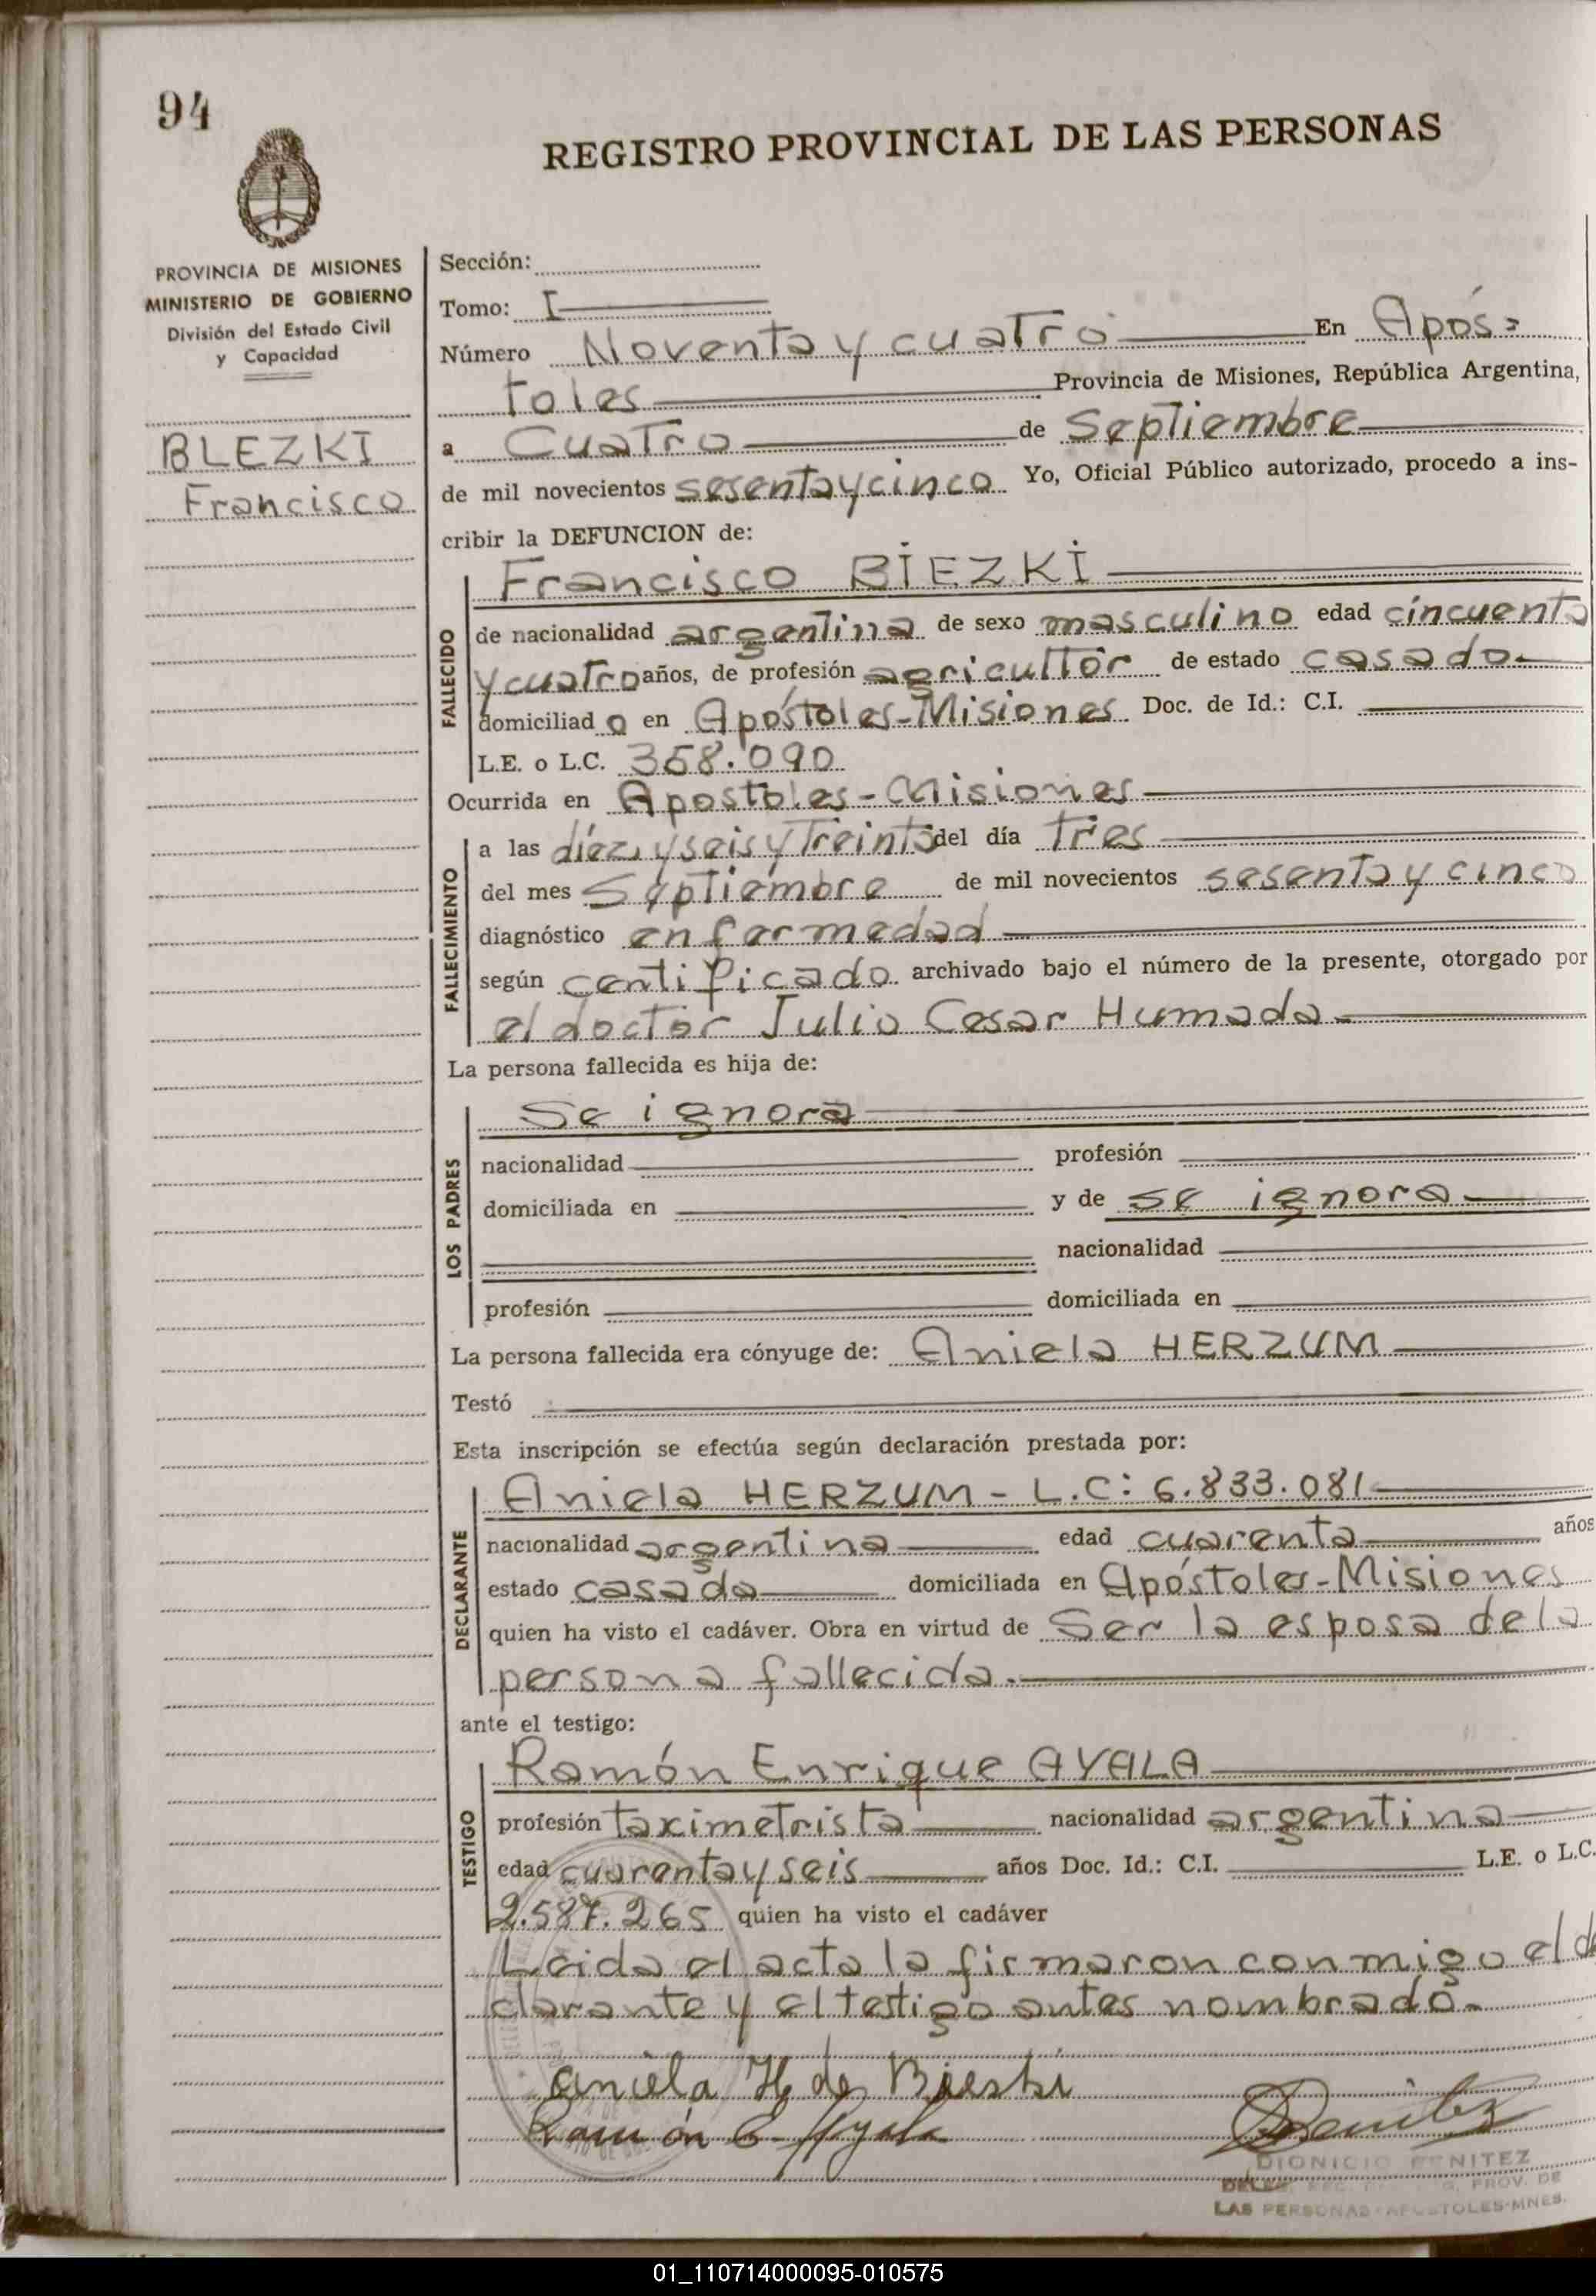 94
REGISTRO PROVINCIAL DE LAS PERSONAS
PROVINCIA DE MISIONES
MINISTERIO DE GOBIERNO
División del Estado Civil
y Capacidad
BLEZKI
Francisco
Sección:
Tomo: I
Número Noventa y cuatro En Após=
toles Provincia de Misiones, República Argentina,
a Cuatro de Septiembre
de mil novecientos sesenta y cinco Yo, Oficial Público autorizado, procedo a ins-
cribir la DEFUNCION de:
FALLECIDO
Francisco BIEZKI
de nacionalidad argentina de sexo masculino edad cincuenta
y cuatro años, de profesión agricultor de estado casado
domiciliado en Apóstoles-Misiones Doc. de Id.: C.I.
L.E. o L.C. 358.090
Ocurrida en Apostoles-Misiones
FALLECIMIENTO
a las diez y seis y Treinta del día Tres
del mes Septiembre de mil novecientos sesenta y cinco
diagnóstico enfermedad
según certificado archivado bajo el número de la presente, otorgado por
el doctor Julio Cesar Humada
La persona fallecida es hija de:
LOS PADRES
Se ignora
nacionalidad profesión
domiciliada en y de se ignora
nacionalidad
profesión domiciliada en
La persona fallecida era cónyuge de: Aniela HERZUM
Testó
Esta inscripción se efectúa según declaración prestada por:
DECLARANTE
Aniela HERZUM - L.C: 6.833.081
nacionalidad argentina edad cuarenta años
estado casada domiciliada en Apóstoles-Misiones
quien ha visto el cadáver. Obra en virtud de Ser la esposa de la
persona fallecida.
ante el testigo:
TESTIGO
Ramón Enrique AYALA
profesión taximetrista nacionalidad argentina
edad cuarenta y seis años Doc. Id.: C.I. L.E. o L.C.
2.587.265 quien ha visto el cadáver
Leida el acta la firmaron conmigo el de
clarante y el testigo antes nombrado.
Aniela H de Bieski
Ramón E. Ayala Benitez
DIONICIO BENITEZ
PROV. DE
LAS PERSONAS - APOSTOLES-MNES.
01_110714000095-010575